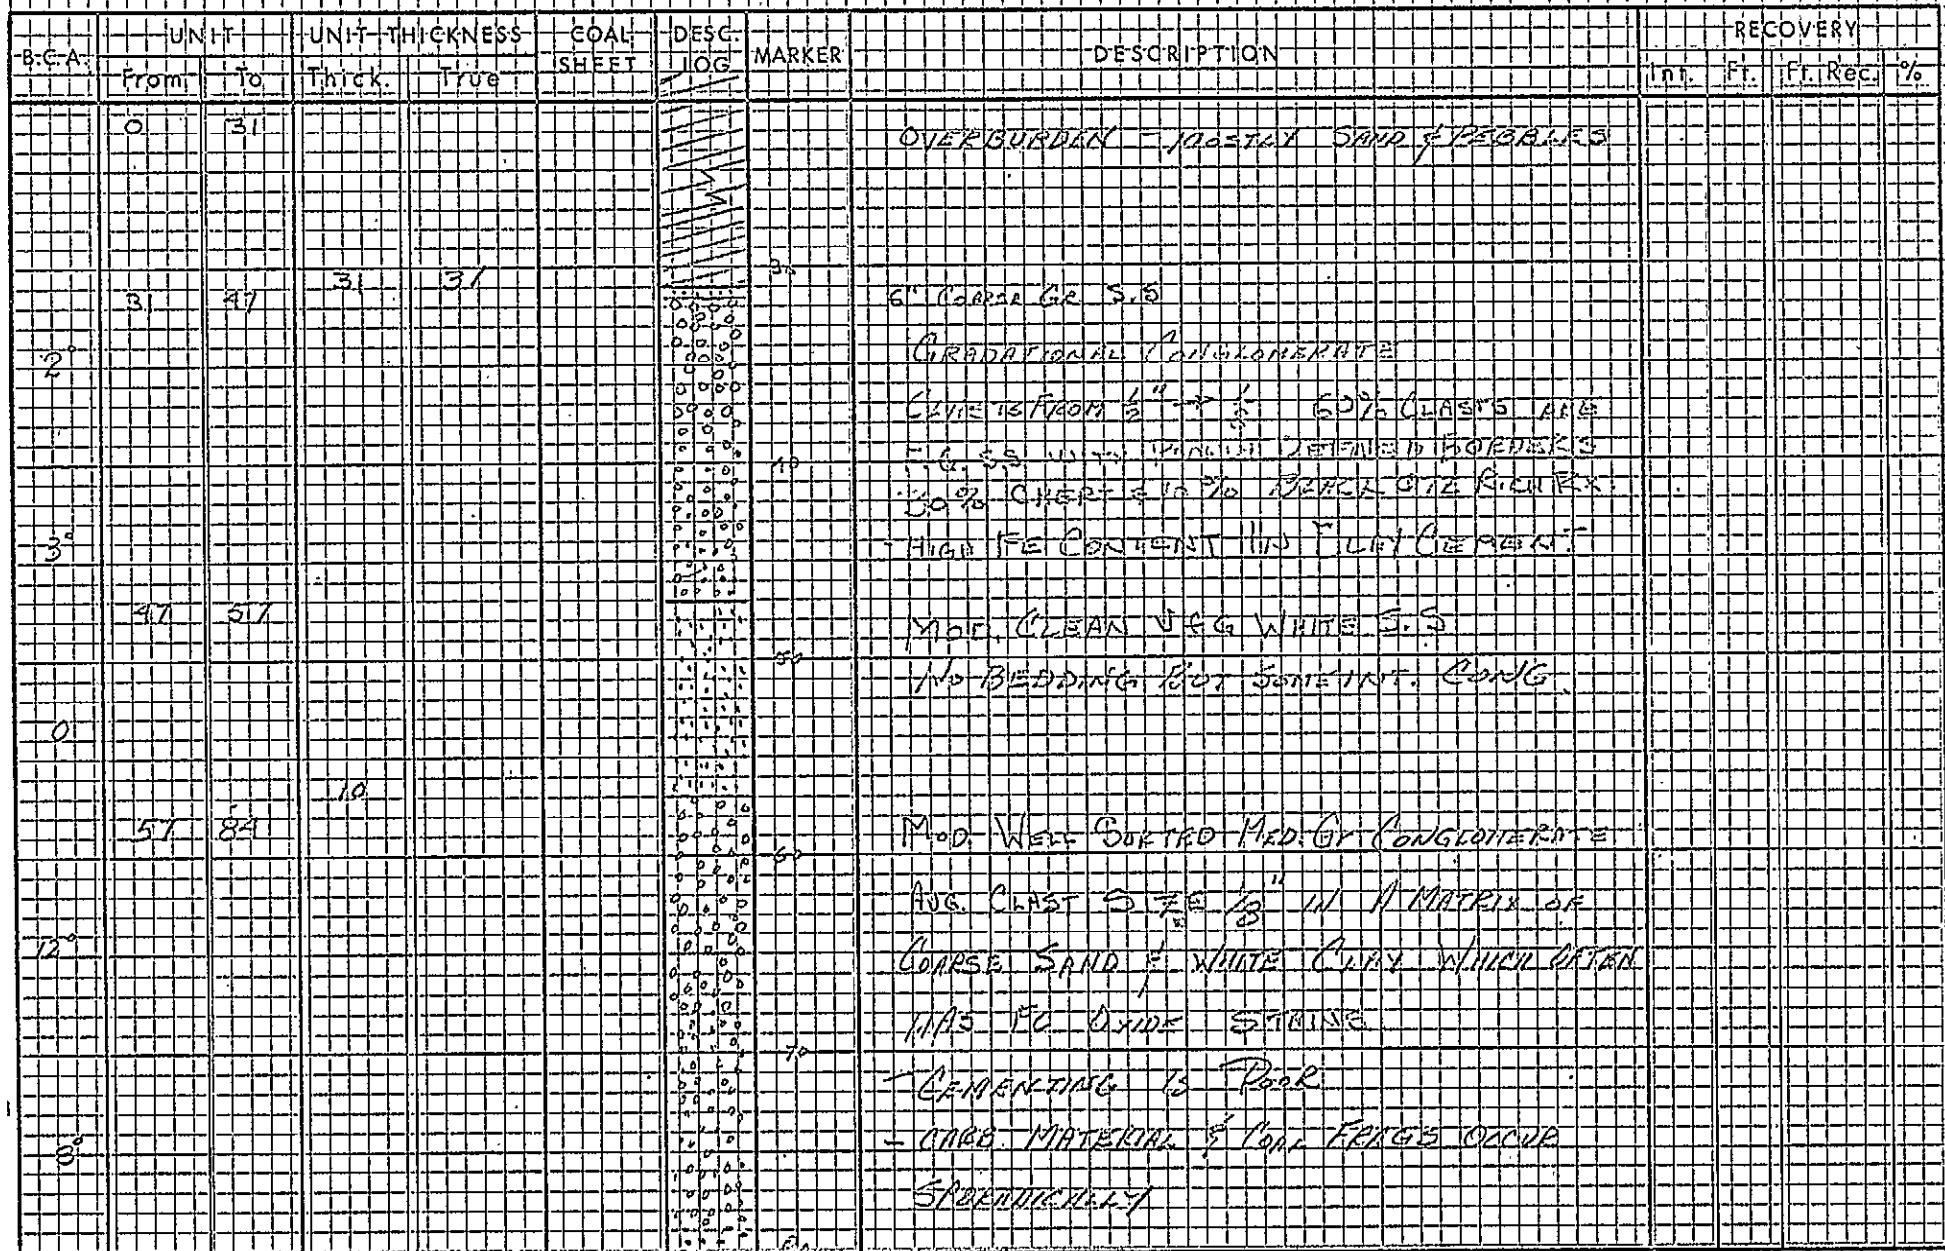 B.C.A. UNIT UNIT THICKNESS COAL SHEET DESC. LOG MARKER DESCRIPTION RECOVERY
From To Thick. True Int. Ft. Ft. Rec. %
0 31 OVERBURDEN - MOSTLY SAND & PEBBLES
31 31 30
31 47 6" COARSE GR S.S
2° GRADATIONAL CONGLOMERATE
FROM 1/2" → 60% CLASTS ARE
40 F.G. S.S WITH DEFINED BORDERS
30% CHERT & 10% BLACK QTZ RICH RX.
3° - HIGH FE CONTENT IN CLAY CEMENT
47 57 MOD. CLEAN VFG WHITE S.S
50 NO BEDDING BUT SOME INT. CONG.
0
10
57 84 MOD. WELL SORTED MED. GY CONGLOMERATE
60
AVG. CLAST SIZE 1/8" IN A MATRIX OF
12° COARSE SAND & WHITE CLAY WHICH OFTEN
HAS FE OXIDE STAINS
70
- CEMENTING IS POOR
8° - CARB. MATERIAL & COAL FRAGS OCCUR
SPORADICALLY